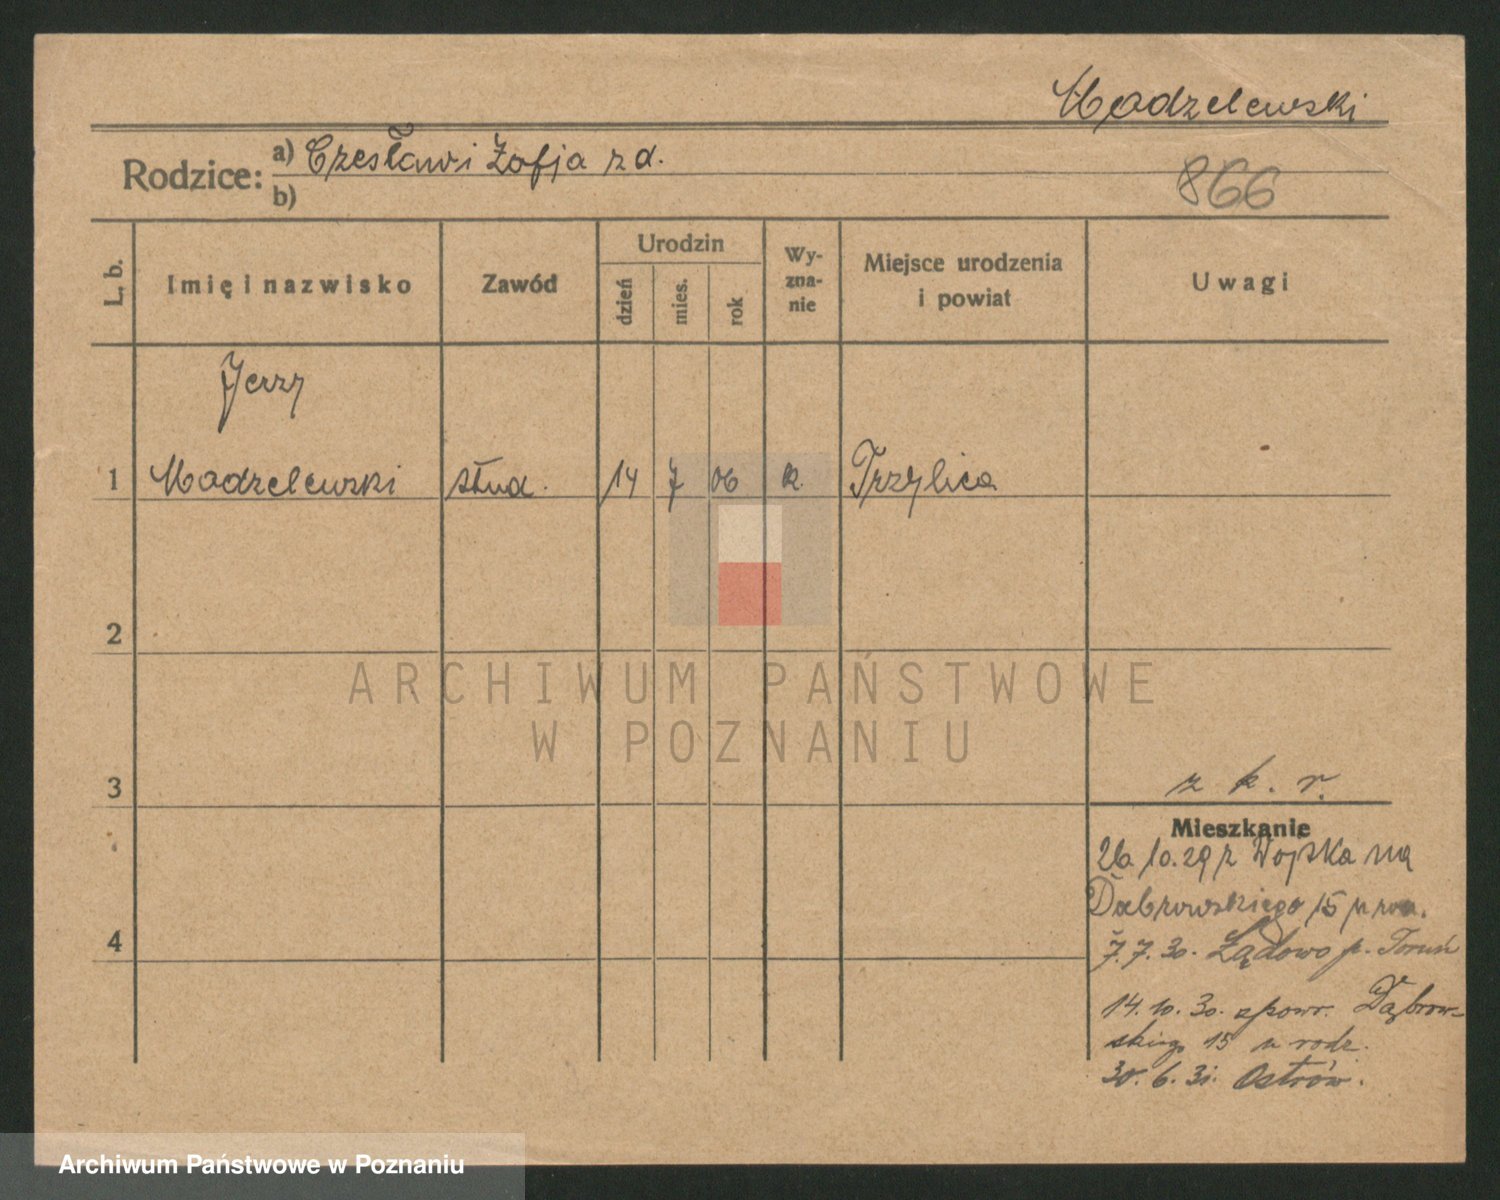 Modzelewski
Rodzice: a) Czesław i Zofja z d.
b)
866
L. b. Imię i nazwisko Zawód Urodzin dzień mies. rok Wy-zna-nie Miejsce urodzenia i powiat Uwagi
Jerzy
1 Modzelewski stud. 14 7 06 k. Trzylica
2
ARCHIWUM PAŃSTWOWE
W POZNANIU
3
z k. r.
Mieszkanie
26.10.29 z Wojska na
Dąbrowskiego 15
4
7.7.30. Lądowo p. Toruń
14.10.30. zpowr. Dąbrow-
skiego 15 u rodz.
30.6.31. Ostrów.
Archiwum Państwowe w Poznaniu